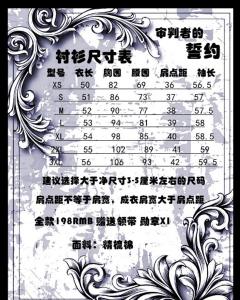 审判者的
誓约
衬衫尺寸表
型号 衣长 胸围 腰围 肩点距 袖长
XS 50 82 69 36 56.5
S 51 86 73 37 57
M 52 90 77 38 57.5
L 53 94 81 39 58
XL 54 98 85 40 58.5
2XL 55 102 89 41 59
3XL 56 106 93 42 59.5
建议选择大于净尺寸3-5厘米左右的尺码
肩点距不等于肩宽，成衣肩宽大于肩点距
全款198RMB 赠送领带 勋章X1
面料：精梳棉